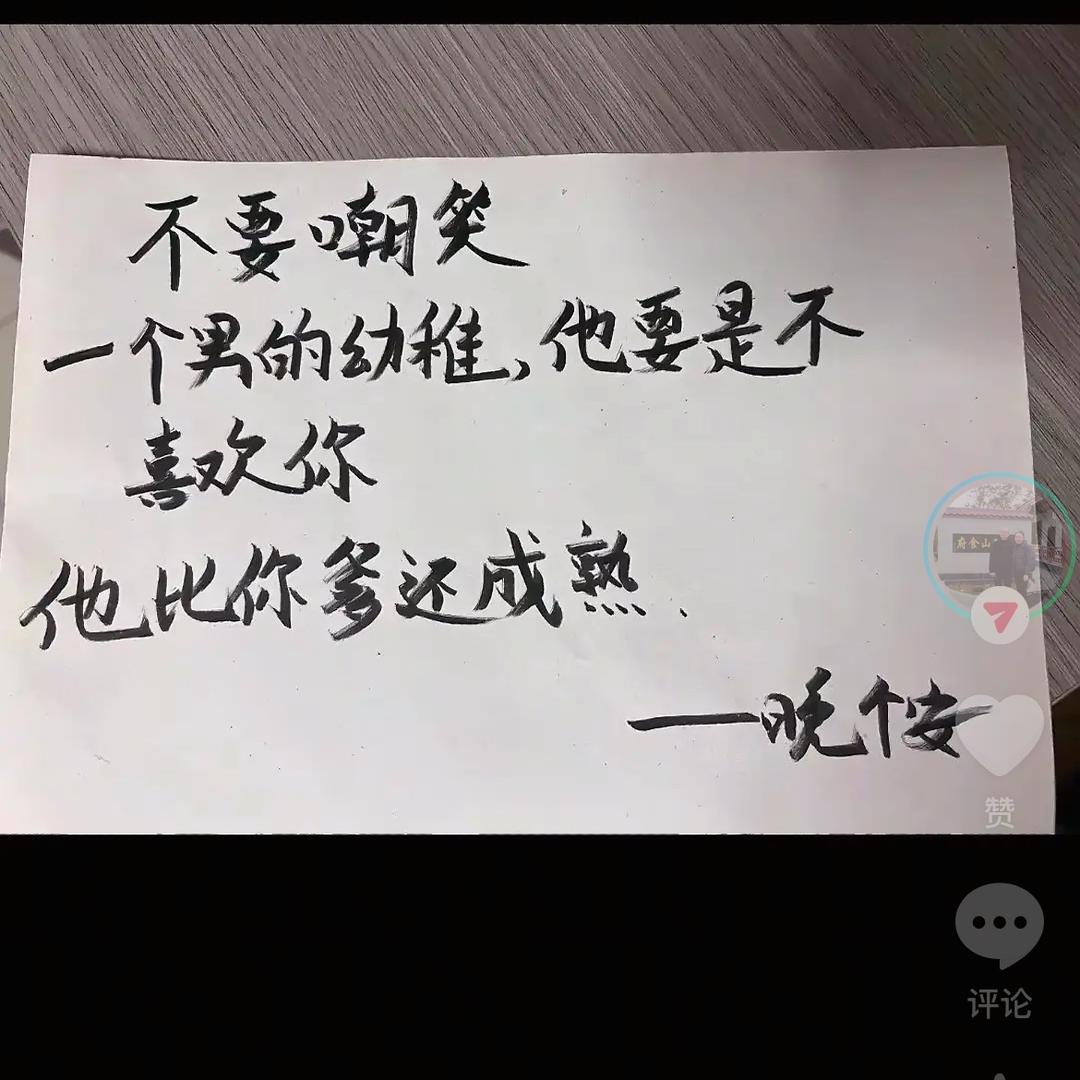 不要嘲笑
一个男的幼稚,他要是不
喜欢你
他比你爹还成熟.
——晚个安
府食山
赞
评论